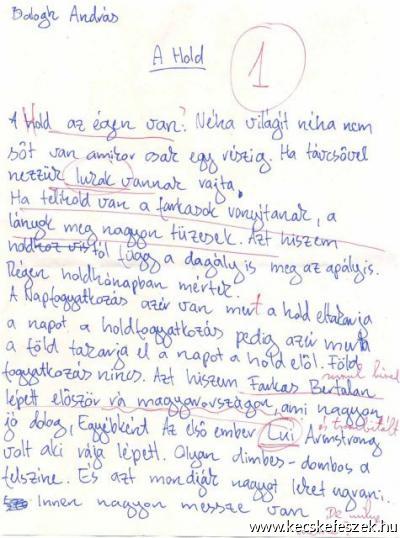 Balogh András
A Hold
1
A Hold az égen van? Néha világít néha nem
sőt van amikor csak egy részig. Ha távcsővel
nezzük lukak vannak rajta.
Ha telihold van a farkasok vonyítanak, a
lányok meg nagyon tüzesek. Azt hiszem
hódtól függ a dagály is meg az apályis.
Régen holdhónapban mértek.
A Napfogyatkozás azér van mert a hód eltakarja
a napot a holdfogyatkozás pedig azér mert
a föld takarja el a napot a hold elől. Föld
fogyatkozás nincs. Azt hiszem Farkas Bertalan
lépett először rá magyarországon, ami nagyon
jó dolog. Egyébként Az első ember Lui Armstrong
volt aki rája lépett. Olyan dimbes-dombos a
felszíne. És azt mondják nagyot lehet ugrani..
Innen nagyon messze van De
www.kecskefeszek.hu